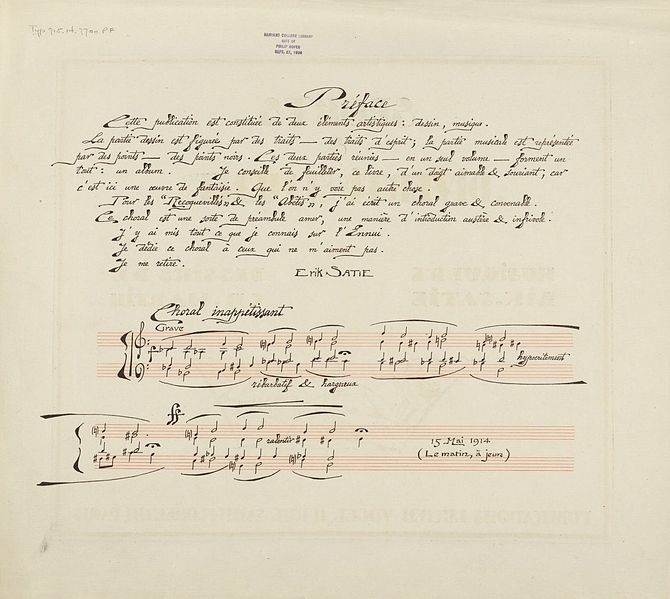 Typ 915.14.7700 PF
HARVARD COLLEGE LIBRARY
GIFT OF
PHILIP HOFER
SEPT. 27,
Préface
Cette publication est constituée de deux éléments artistiques : dessin, musique.
La partie dessin est figurée par des traits — des traits d'esprit ; la partie musicale est représentée
par des points — des points noirs. Ces deux parties réunies — en un seul volume — forment un
tout : un album. Je conseille de feuilleter, ce livre, d'un doigt aimable & souriant, car
c'est ici une œuvre de fantaisie. Que l'on n'y voie pas autre chose.
Pour les "Recroquevillés" & les "Abêtis", j'ai écrit un choral grave & convenable.
Ce choral est une sorte de préambule amer, une manière d'introduction austère & infrivole.
J'y ai mis tout ce que je connais sur l'Ennui.
Je dédie ce choral à ceux qui ne m'aiment pas.
Je me retire.
ERIK SATIE
Choral inappétissant
Grave
f
hypocritement
rébarbatif & hargneux
ff
ralentir
15 Mai 1914
(Le matin, à jeun)